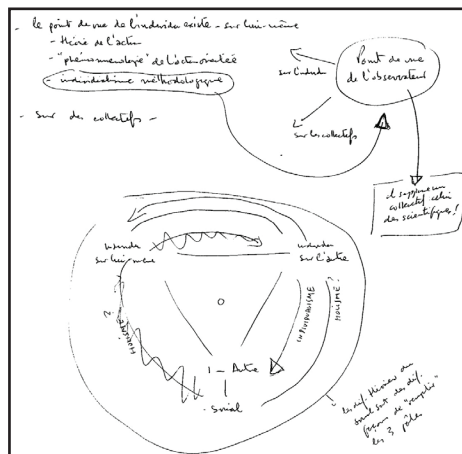 - le point de vue de l'individu existe - sur lui-même
- théorie de l'action
- "phénoménologie" de l'acteur
- individualisme méthodologique
- sur des collectifs -
Point de vue
de l'observateur
sur l'individu
sur les collectifs
il suppose un
collectif celui
des scientifiques !
individu
sur lui-même
individu
sur l'autre
HOLISME ?
INDIVIDUALISME
HOLISME ?
Autre
social
les dif. théories du
social sont des dif.
façons de "remplir"
les 3 pôles